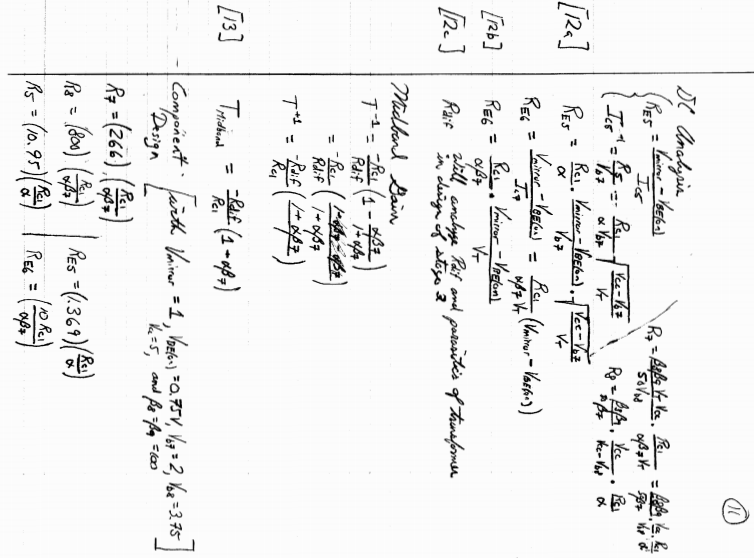 11
DC Analysis
R_E5 = (V_mirror - V_BE(on)) / I_C5
R_7 = (β_8β_9 V_T V_cc / 50 V_b8) · (R_C1 / αβ_7 V_T)
I_C5^-1 = R_5 / V_b7 = (R_C1 / αV_b7) √((V_cc - V_b7) / V_T)
R_8 = · (V_cc / (V_cc - V_b8)) · (R_C1 / α)
[12a] R_E5 = (R_C1 / α) · ((V_mirror - V_BE(on)) / V_b7) · √((V_cc - V_b7) / V_T)
R_E6 = (V_mirror - V_BE(on)) / I_C7 = (R_C1 / αβ_7 V_T) (V_mirror - V_BE(on))
[12b] R_E6 = (R_C1 / αβ_7) · ((V_mirror - V_BE(on)) / V_T)
[12c] Rdif will analyze Rdif and parasitics of transformer
in design of stage 2
Midband Gain
T^-1 = (-R_C1 / Rdif) (1 - αβ_7 / (1+αβ_7))
= (-R_C1 / Rdif) ((1+αβ_7-αβ_7) / (1+αβ_7))
T^+1 = (-Rdif / R_C1) (1+αβ_7)
[13] T_Midband = (-Rdif / R_C1) (1+αβ_7)
Component Design [with V_mirror = 1, V_BE(on) = 0.75V, V_b7 = 2, V_b8 = 3.75
V_cc = 5, and β_8 = β_9 = 100]
R_7 = (266) (R_C1 / αβ_7)
R_8 = (800) (R_C1 / αβ_7) R_E5 = (1.369) (R_C1 / α)
R_5 = (10.95) (R_C1 / α) R_E6 = (10 R_C1 / αβ_7)